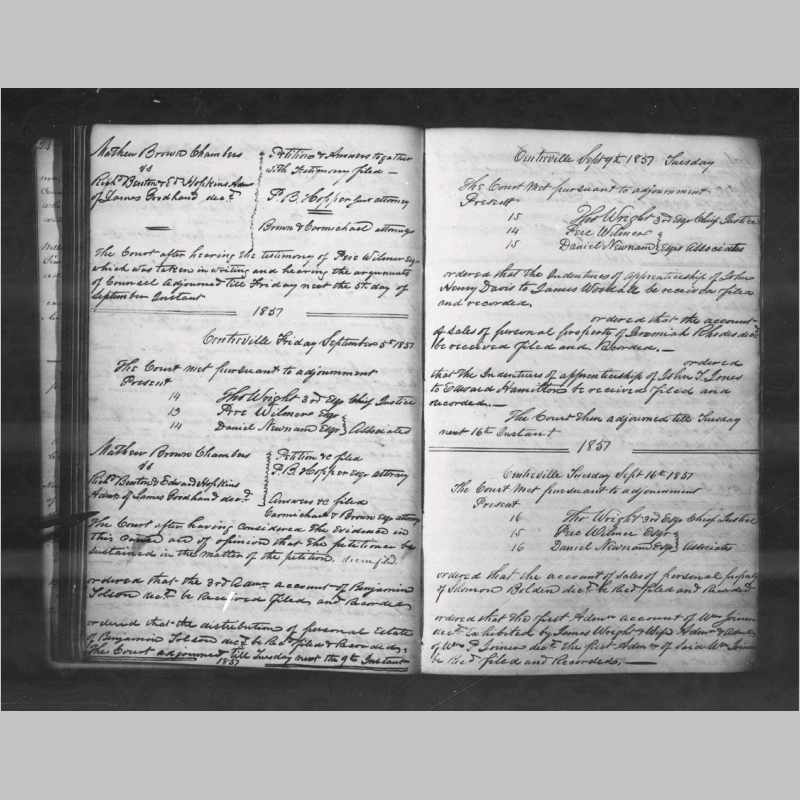 Mathew Brown Chambers
vs
Richd Benton & Ed Hopkins Adm
of James Goodhand decd
Petition & Answers together
with Testimony filed —
P. B. Hopper for attorney
Brown & Carmichael attorneys
The Court after hearing the testimony of Pere Wilmer Esqr
which was taken in writing and hearing the arguments
of Counsel adjourned till Friday next the 5th day of
September Instant
1851
Centreville Friday September 5th 1851
The Court met pursuant to adjournment
Present
14 Tho Wright 3rd Esqr Chief Justice
13 Pere Wilmer Esqr
14 Daniel Newnam Esqr } Associates
Mathew Brown Chambers
vs
Richd Benton & Edward Hopkins
Admrs of James Goodhand decd
Petition &c filed
P. B. Hopper Esqr attorney
Answers &c filed
Carmichael & Brown Esqr attorneys
The Court after having considered the evidence in
this cause are of opinion that the petitioner be
sustained in the matter of the petition.
ordered that the 3rd Admn account of Benjamin
Tolson decd be Received filed and Recorded
ordered that the distribution of personal Estate
of Benjamin Tolson decd be Recd filed & Recorded.
The Court adjourned till Tuesday next the 9th Instant
1851
Centreville Sept 9th 1851 Tuesday
The Court met pursuant to adjournment
Present
15 Tho Wright 3rd Esqr Chief Justice
14 Pere Wilmer
15 Daniel Newnam } Esqrs Associates
ordered that the Indentures of apprenticeship of John
Henry Davis to James be receiver filed
and recorded.
ordered that the account
of sales of personal property of Jeremiah Rhodes decd
be received filed and Recorded. —
ordered
that the Indentures of apprenticeship of John T. Jones
to Edward Hamilton be received filed and
recorded. —
The Court then adjourned till Tuesday
next 16th Instant
1851
Centreville Tuesday Sept 16th 1851
The Court met pursuant to adjournment
Present
16 Tho Wright 3rd Esqr Chief Justice
15 Pere Wilmer Esqr
16 Daniel Newnam Esqr } Associates
ordered that the account of sales of personal property
of Solomon Bolden decd be Recd filed and Recorded
ordered that the first Admn account of Wm Joiner
decd exhibited by James Wright & Wife Admr &
of Wm P. Joiner decd the first Admr of Said Wm Joiner
be Recd filed and Recorded. —